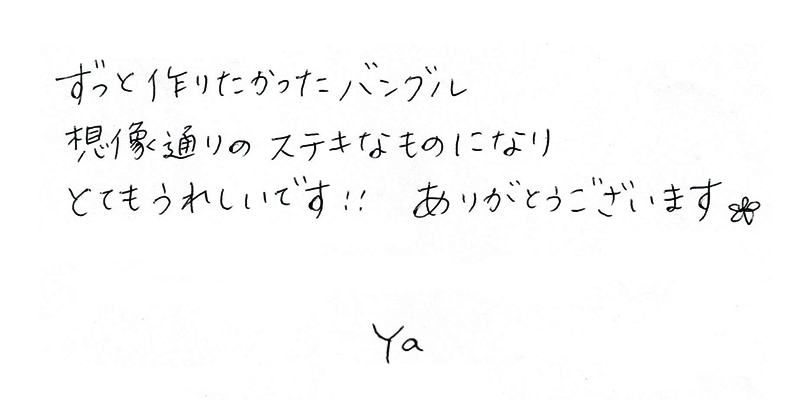 ずっと作りたかったバングル
想像通りの ステキなものになり
とてもうれしいです!! ありがとうございます
Ya